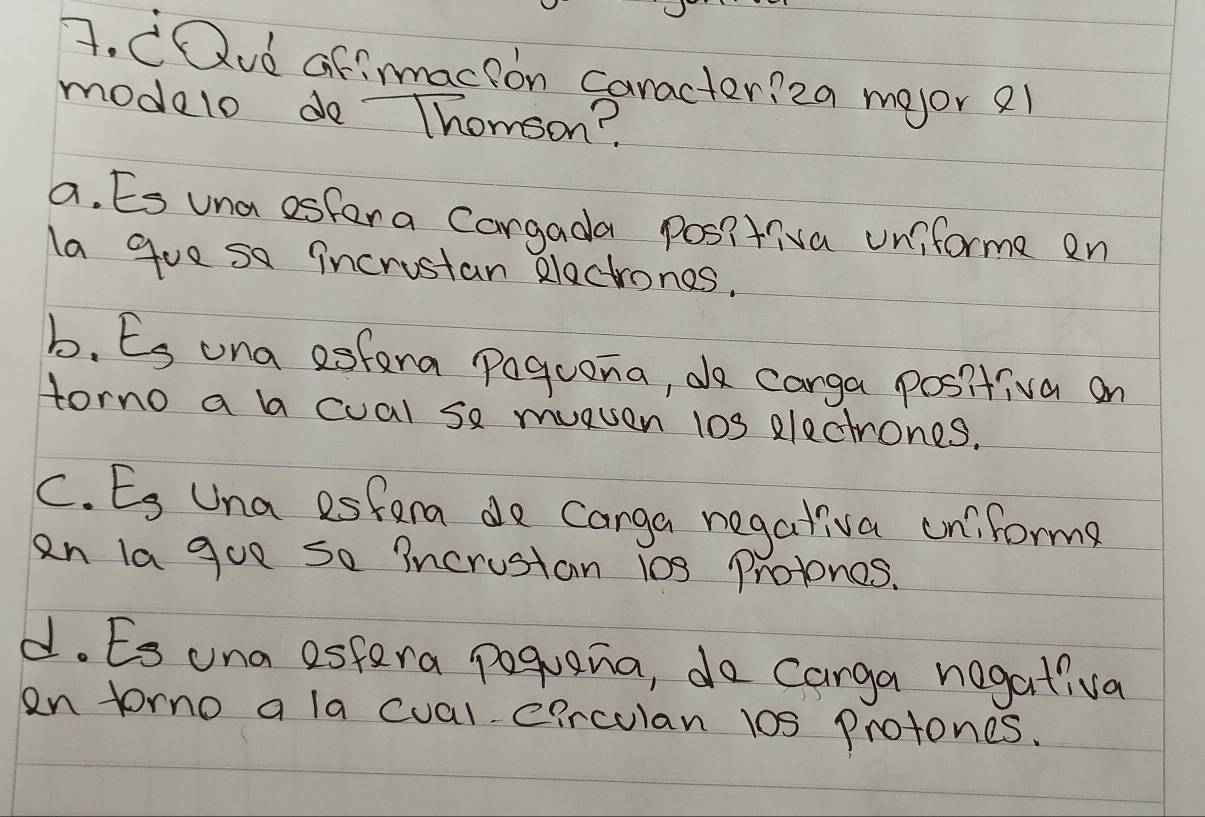 7. ¿Qué afirmación caracteriza mejor el
modelo de Thomson?.
a. Es una esfera cargada positiva uniforme en
la que se incrustan electrones.
b. Es una esfera pequeña, de carga positiva en
torno a la cual se mueven los electrones.
C. Es una esfera de carga negativa uniforme
en la que se incrustan los protones.
d. Es una esfera pequeña, de carga negativa
en torno a la cual circulan los protones.